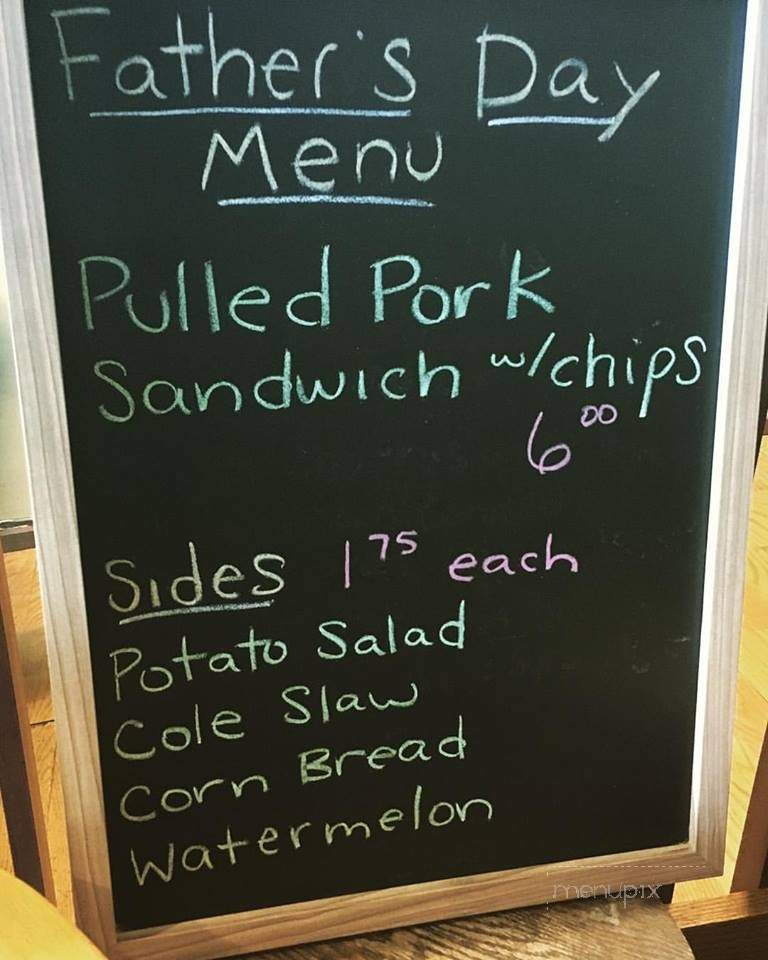 Father's Day
Menu
Pulled Pork
Sandwich w/chips
6 00
Sides 1 75 each
Potato Salad
Cole Slaw
Corn Bread
Watermelon
menupix